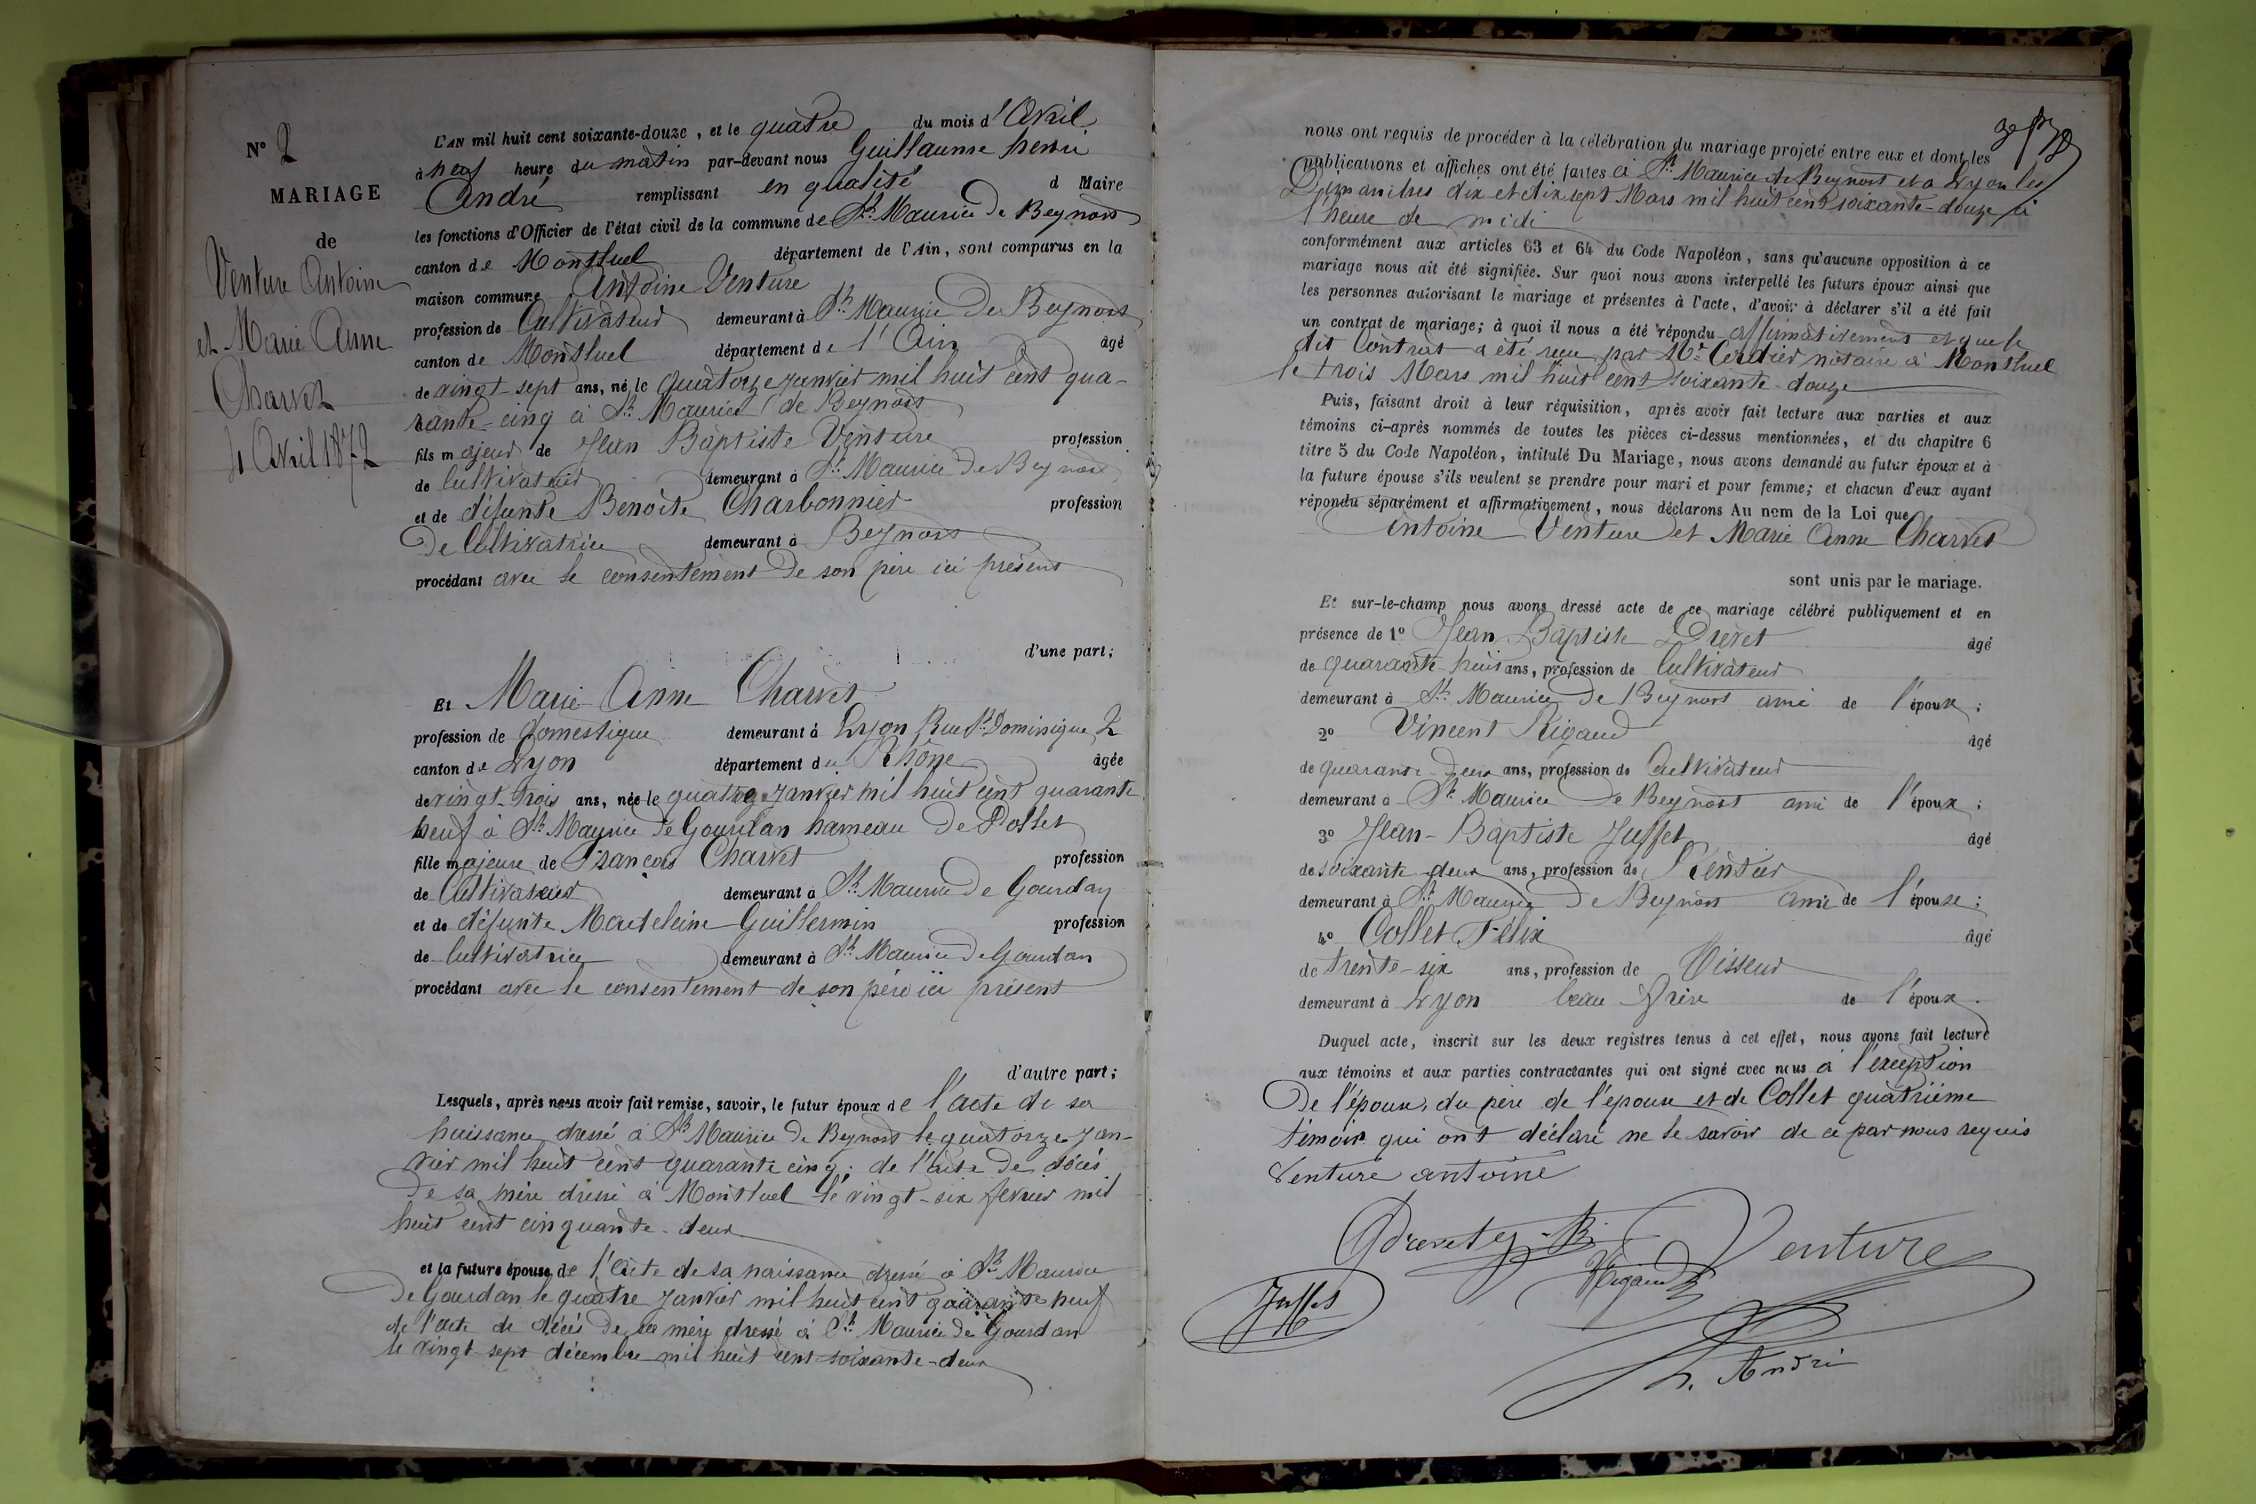 N° 2
MARIAGE
de
Venture Antoine
et Marie Anne
Charvet
4 Avril 1872
L'AN mil huit cent soixante-douze, et le quatre du mois d'Avril
à neuf heure du matin par-devant nous Guillaume henri
André remplissant en qualité d Maire
les fonctions d'Officier de l'état civil de la commune de St. Maurice de Beynost
canton de Montluel département de l'Ain, sont comparus en la
maison commune Antoine Venture
profession de Cultivateur demeurant à St. Maurice De Beynost
canton de Montluel département de l'Ain âgé
de vingt sept ans, né le quatorze janvier mil huit cent qua-
rante-cinq à St. Maurice de Beynost
fils majeur de Jean Baptiste Venture profession
de Cultivateur demeurant à St. Maurice De Beynost
et de défunte Benoîte Charbonnier profession
De Cultivatrice demeurant à Beynost
procédant avec le consentement De son père ici présent
d'une part;
Et Marie Anne Charvet
profession de domestique demeurant à Lyon Rue St. Dominique 2
canton de Lyon département du Rhône âgée
de vingt-trois ans, née le quatre janvier mil huit cent quarante
neuf à St. Maurice de Gourdan hameau De Pollet
fille majeure de François Charvet profession
de Cultivateur demeurant à St. Maurice De Gourdan
et de défunte Madeleine Guillermin profession
de Cultivatrice demeurant à St. Maurice De Gourdan
procédant avec le consentement de son père ici présent
d'autre part;
Lesquels, après nous avoir fait remise, savoir, le futur époux de l'acte de sa
naissance dressé à St. Maurice De Beynost le quatorze jan-
vier mil huit cent quarante cinq; de l'acte De décès
De sa mère dressé à Montluel le vingt-six fevrier mil
huit cent cinquante-deux
et la future épouse de l'Acte de sa naissance dressé à St. Maurice
De Gourdan le quatre janvier mil huit cent quarante neuf
de l'acte de décès De sa mère dressé à St. Maurice De Gourdan
le vingt sept décembre mil huit cent soixante-deux
nous ont requis de procéder à la célébration du mariage projeté entre eux et dont les
publications et affiches ont été faites à St. Maurice de Beynost et à Lyon les
Dimanches dix et dix sept Mars mil huit cent soixante-douze à
l'heure de midi
conformément aux articles 63 et 64 du Code Napoléon, sans qu'aucune opposition à ce
mariage nous ait été signifiée. Sur quoi nous avons interpellé les futurs époux ainsi que
les personnes autorisant le mariage et présentes à l'acte, d'avoir à déclarer s'il a été fait
un contrat de mariage; à quoi il nous a été répondu affirmativement et que le
dit Contrat a été reçu par Me. Cordier notaire à Montluel
le trois Mars mil huit cent soixante-douze
Puis, faisant droit à leur réquisition, après avoir fait lecture aux parties et aux
témoins ci-après nommés de toutes les pièces ci-dessus mentionnées, et du chapitre 6
titre 5 du Code Napoléon, intitulé Du Mariage, nous avons demandé au futur époux et à
la future épouse s'ils veulent se prendre pour mari et pour femme; et chacun d'eux ayant
répondu séparément et affirmativement, nous déclarons Au nom de la Loi que
Antoine Venture et Marie Anne Charvet
sont unis par le mariage.
Et sur-le-champ nous avons dressé acte de ce mariage célébré publiquement et en
présence de 1° Jean Baptiste Drevet âgé
de quarante-huit ans, profession de Cultivateur
demeurant à St. Maurice De Beynost ami de l'époux;
2° Vincent Rigaud âgé
de quarante-deux ans, profession de Cultivateur
demeurant à St. Maurice De Beynost ami de l'époux;
3° Jean-Baptiste Juffet âgé
de soixante-deux ans, profession de Rentier
demeurant à St. Maurice De Beynost ami de l'épouse;
4° Collet Félix âgé
de trente-six ans, profession de
demeurant à Lyon beau frère de l'époux.
Duquel acte, inscrit sur les deux registres tenus à cet effet, nous avons fait lecture
aux témoins et aux parties contractantes qui ont signé avec nous à l'exception
De l'épouse, du père de l'épouse et de Collet quatrième
témoin qui ont déclaré ne le savoir de ce par nous requis
Venture antoine
Drevet J-B.
Venture
Rigaud
Juffet
h. André